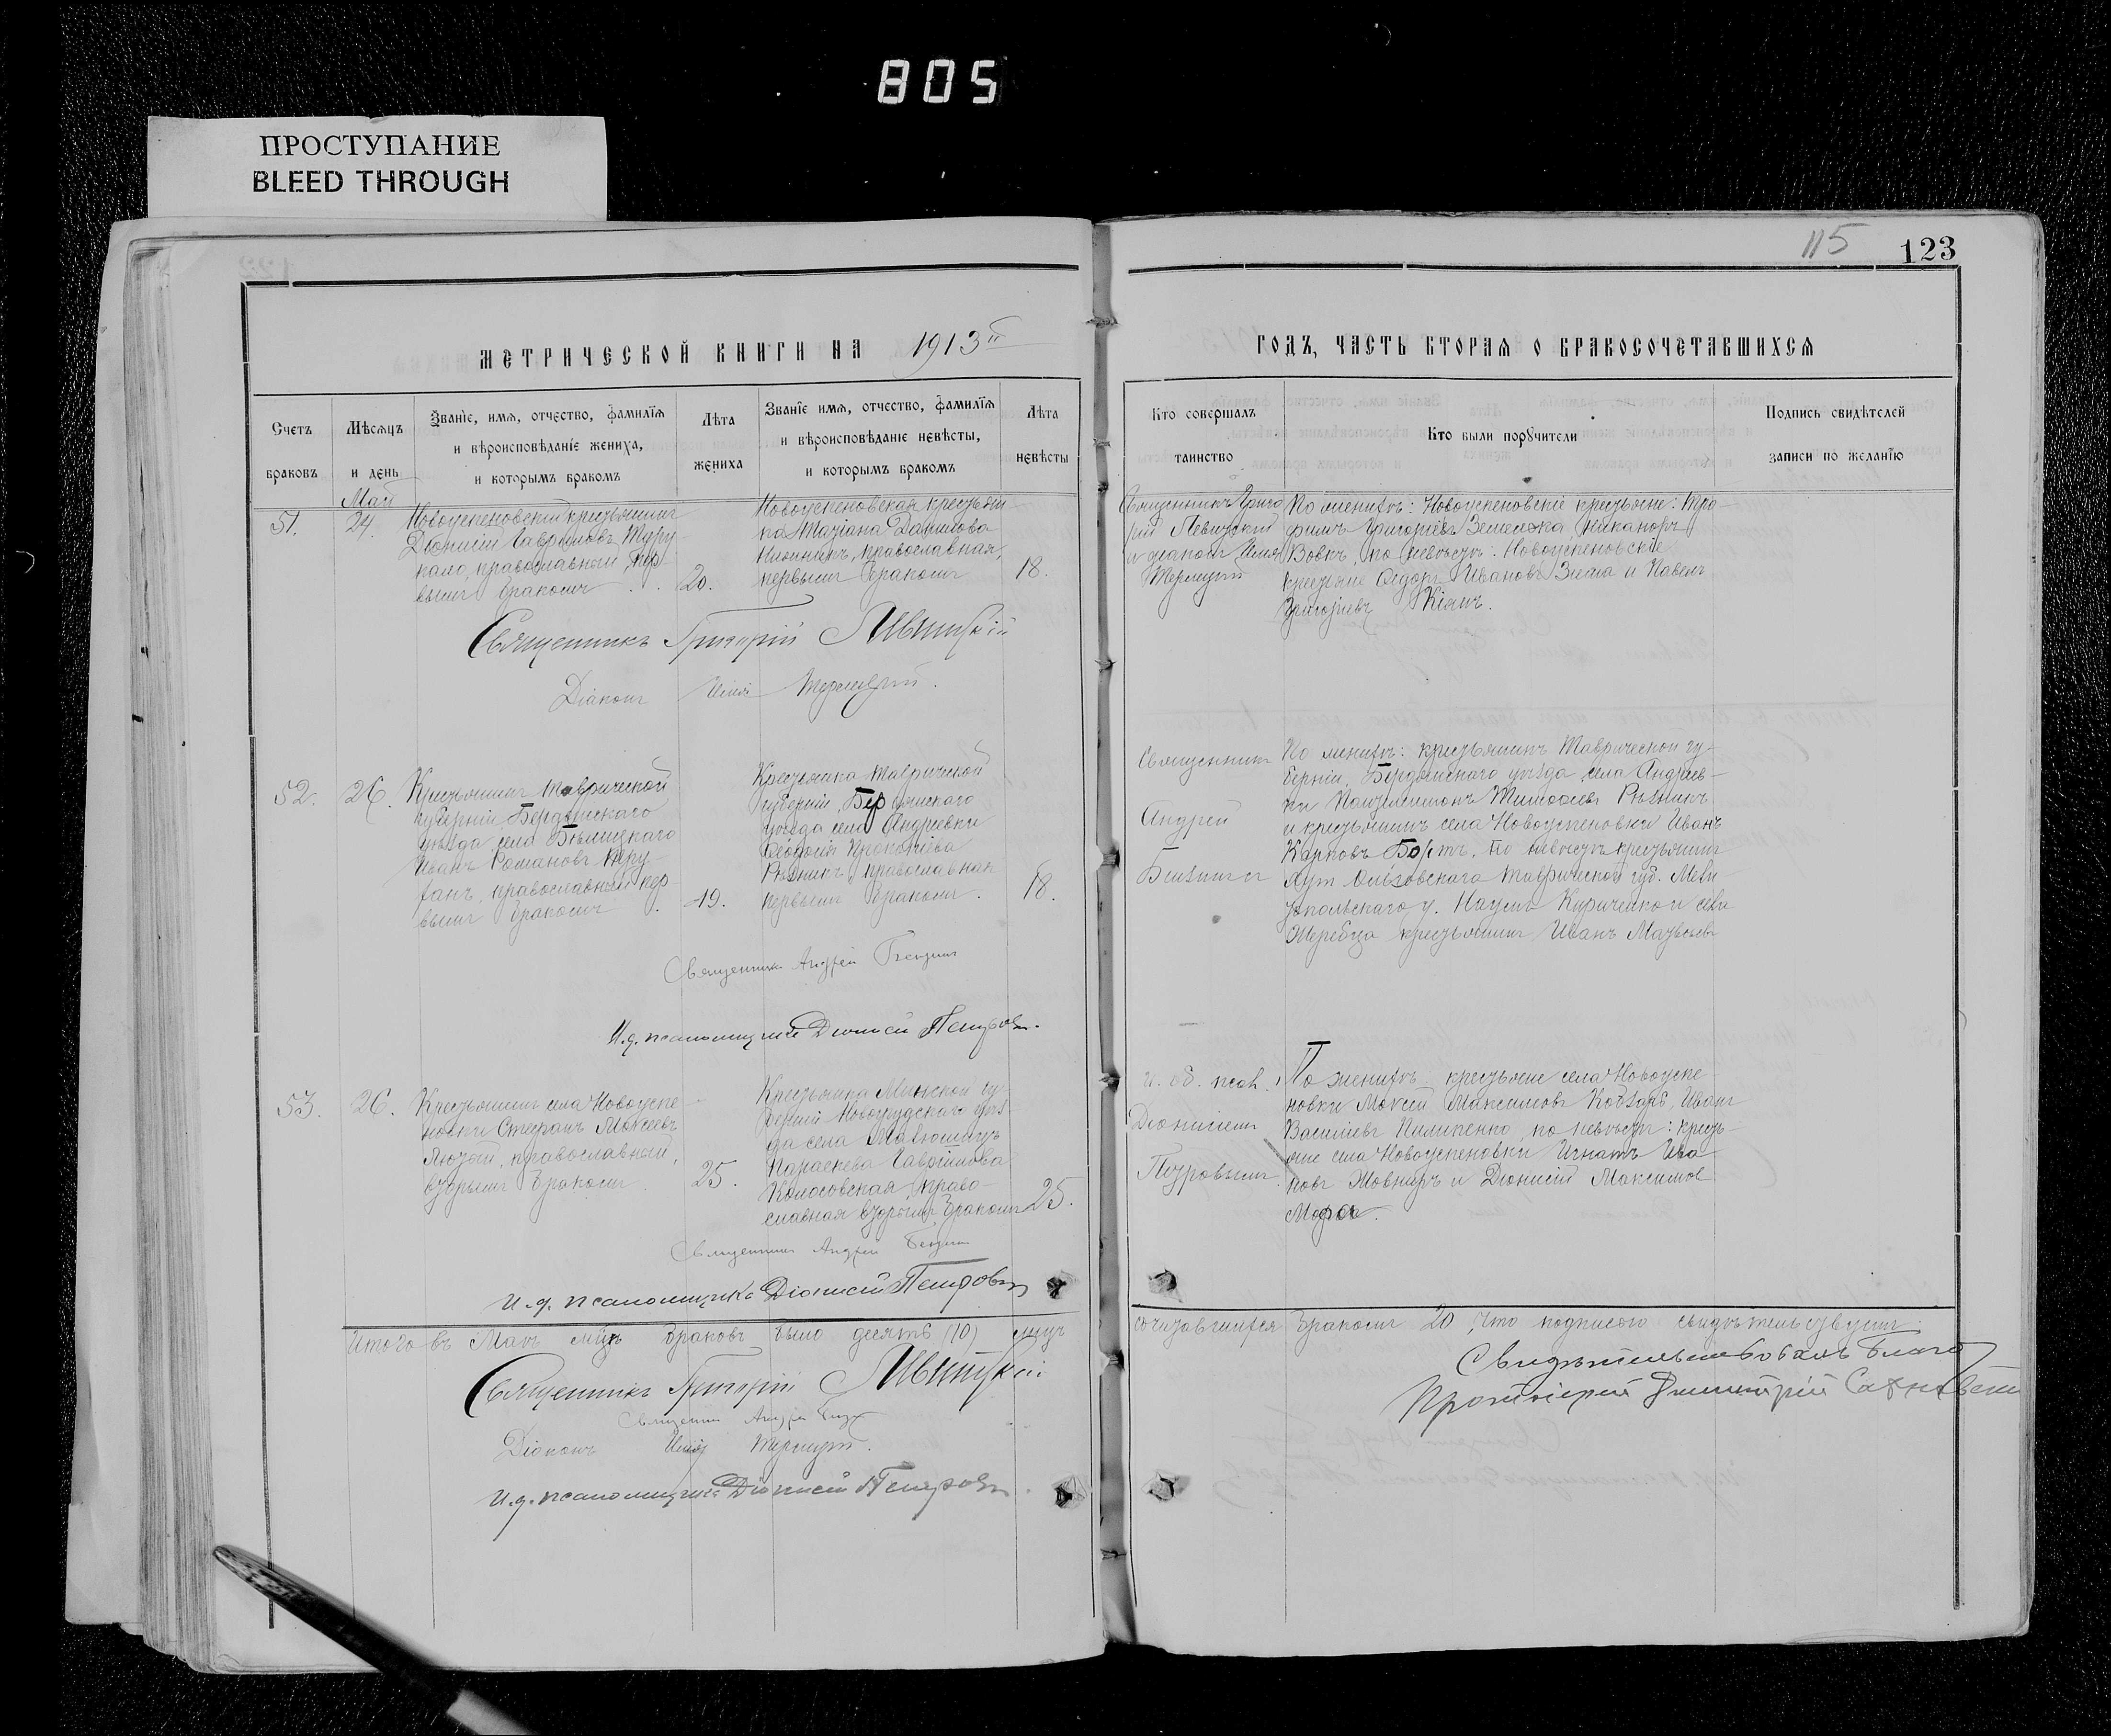 805
ПРОСТУПАНИЕ
BLEED THROUGH
115
123
МЕТРИЧЕСКОЙ КНИГИ НА 1913й
ГОДЪ, ЧАСТЬ ВТОРАЯ О БРАКОСОЧЕТАВШИХСЯ
Счетъ
браковъ
Мѣсяцъ
и день
Званіе, имя, отчество, фамилія
и вѣроисповѣданіе жениха,
и которымъ бракомъ
Лѣта
жениха
Званіе имя, отчество, фамилія
и вѣроисповѣданіе невѣсты,
и которымъ бракомъ
Лѣта
невѣсты
Кто совершалъ
таинство
Кто были поручители
Подпись свидѣтелей
записи по желанію
51.
Май
24.
Новоуспеновскій крестьянинъ
Діонисій Гавріиловъ Туру-
кало, православный, пер
вымъ бракомъ
20.
Новоуспеновская крестьян-
ка Татіана Даніилова
православная,
первымъ бракомъ
18.
Священникъ Григо
рій Левитскій
и діаконъ Илія
Терлецкій
По женихѣ: Новоуспеновскіе крестьяне: Тро-
фимъ Григоріевъ Никаноръ
Вовкъ, по невѣстѣ: Новоуспеновскіе
крестьяне Ѳедоръ Ивановъ Зима и Павелъ
Григоріевъ Кіянъ.
Священникъ Григорій Лѣвитскій
Діаконъ Илія Терлецкій.
52.
26.
Крестьянинъ Таврической
губерніи Бердянскаго
уѣзда села
Иванъ Романовъ
православный пер
вымъ бракомъ
19.
Крестьянка Таврической
губерніи, Бердянскаго
уѣзда села Андреевки
Ѳеодосія Прокопіева
Рѣзникъ, православная
первымъ бракомъ.
18.
Священникъ
Андрей
По женихѣ: крестьянинъ Таврической гу-
берніи, Бердянскаго уѣзда села Андреев-
ки Пантелеимонъ Тимоѳеевъ Рѣзникъ
и крестьянинъ села Новоуспеновки Иванъ
Карповъ Бортъ. По невѣстѣ крестьянинъ
Таврической губ. Мели-
топольскаго у. Наумъ Кириченко и села
Жеребца крестьянинъ Иванъ Матвѣевъ
Священникъ Андрей
И.д. псаломщика Діонисій Петровъ.
53.
26.
Крестьянинъ села Новоуспе-
новки Стефанъ Моисеевъ
Лютый, православный,
вторымъ бракомъ
25.
Крестьянка Минской гу-
берніи Новогрудскаго уѣз-
да села
Параскева Гавріилова
Колосовская, право-
славная вторымъ бракомъ
25.
и. об. псал.
Діонисіемъ
Петровымъ.
По женихѣ крестьяне села Новоуспе-
новки Моисей Максимовъ Иванъ
Василіевъ Пилипенко, по невѣстѣ: кресть-
яне села Новоуспеновки Игнатъ Ива
новъ Жовниръ и Діонисій Максимов
Священникъ Андрей
И.д. псаломщика Діонисій Петровъ
Итого въ Маѣ мцѣ браковъ было десять (10) лицъ
сочетавшихся бракомъ 20, что подписью свидѣтельствуемъ:
Священникъ Григорій Лѣвитскій
Священникъ Андрей
Діаконъ Илія Терлецкій.
И.д. псаломщика Діонисій Петровъ
Свидѣтельствовалъ Благоч
Протоіерей Димитрій